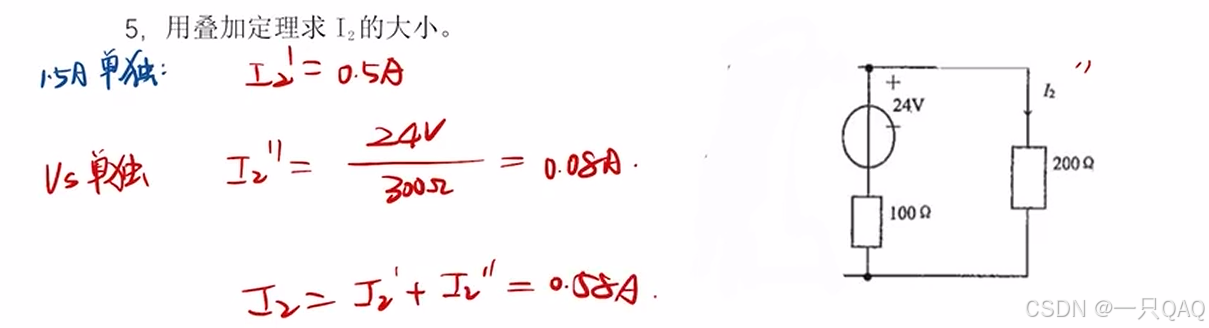 5, 用叠加定理求 I₂ 的大小。
1.5A 单独: I₂' = 0.5A
Vs 单独 I₂'' = 24V / 300Ω = 0.08A.
I₂ = I₂' + I₂'' = 0.58A.
''
+
24V
−
I₂
200Ω
100Ω
CSDN @一只QAQ